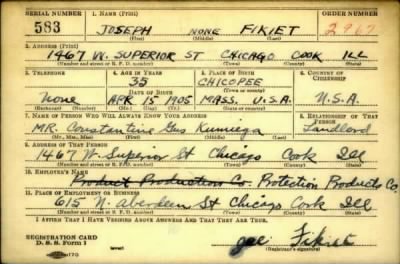 SERIAL NUMBER 1. NAME (Print) ORDER NUMBER
583 JOSEPH NONE FIKIET 2967
(First) (Middle) (Last)
2. ADDRESS (Print)
1467 W. SUPERIOR ST CHICAGO COOK ILL
(Number and street or R. F. D. number) (Town) (County) (State)
3. TELEPHONE 4. AGE IN YEARS 5. PLACE OF BIRTH 6. COUNTRY OF CITIZENSHIP
35 CHICOPEE
DATE OF BIRTH (Town or county)
None APR 15 1905 MASS. U.S.A. U.S.A.
(Exchange) (Number) (Mo.) (Day) (Yr.) (State or country)
7. NAME OF PERSON WHO WILL ALWAYS KNOW YOUR ADDRESS 8. RELATIONSHIP OF THAT PERSON
MR. Constantine Gus Kumiega Landlord
(Mr., Mrs., Miss) (First) (Middle) (Last)
9. ADDRESS OF THAT PERSON
1467 W. Superior St Chicago Cook Ill
(Number and street or R. F. D. number) (Town) (County) (State)
10. EMPLOYER'S NAME
Product Production Co. Protection Products Co.
11. PLACE OF EMPLOYMENT OR BUSINESS
615 N. Aberdeen St Chicago Cook Ill
(Number and street or R. F. D. number) (Town) (County) (State)
I AFFIRM THAT I HAVE VERIFIED ABOVE ANSWERS AND THAT THEY ARE TRUE.
REGISTRATION CARD
D. S. S. Form 1 Joe Fikiet